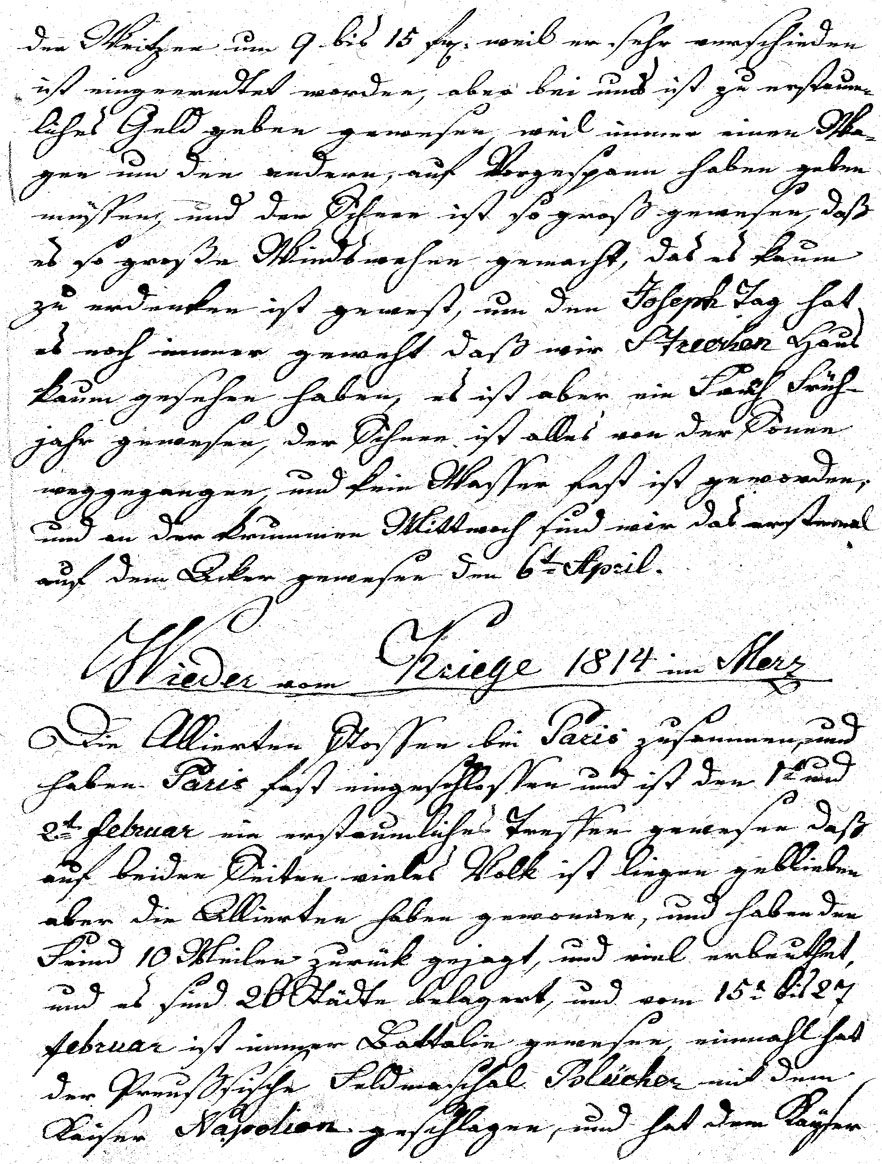 der Weitzen um 9 bis 15 fx: weil er sehr verschieden
ist eingeerndtet worden, aber bei uns ist zu erstaun-
liches Geld geben gewesen, weil immer einen Wa-
gen um den andern, auf Vorgespann haben geben
müssen, und der Schnee ist so groß gewesen, daß
es so große Windswehen gemacht, das es kaum
zu erdenken ist gewest, um den Joseph Tag hat
es noch immer geweht daß wir Haus
kaum gesehen haben, es ist aber ein Früh-
jahr gewesen, der Schnee ist alles von der Sonne
weggegangen, und kein Wasser fast ist geworden,
und an der krummen Mittwoch sind wir das erstemal
auf dem Acker gewesen den 6t April.
Wieder vom Kriege 1814 im Merz
Die Allierten Stossen bei Paris zusammen, und
haben Paris fast eingeschlossen und ist den 1t und
2t februar ein erstaunliches Treffen gewesen daß
auf beiden Seiten vieles Volk ist liegen geblieben
aber die Allierten haben gewonnen, und haben den
Feind 10 Meilen zurück gejagt, und viel erbeuthet,
und es sind 26 Städte belagert, und vom 15t bis 27
februar ist immer Battalie gewesen, einmahl hat
der Preußsische Feldmaschal Blücher mit dem
Kaiser Napolion geschlagen, und hat dem Kayser